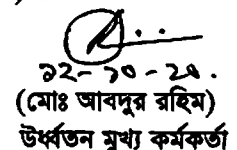 ১২-১০-২০.
(মোঃ আবদুর রহিম)
উর্ধ্বতন মুখ্য কর্মকর্তা